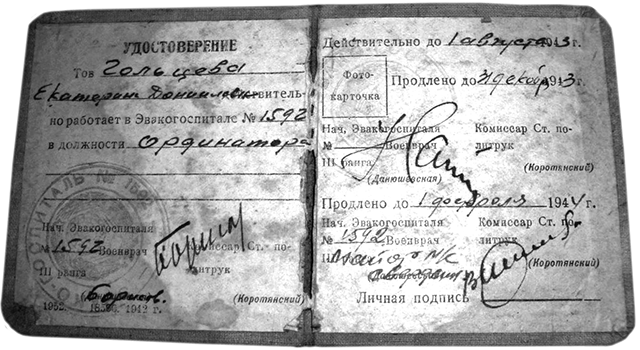 УДОСТОВЕРЕНИЕ
Тов Гольцева
Екатерина
но работает в Эвакогоспитале № 1592
в должности Ординатора
Нач. Эвакогоспиталя
№ 1592 Военврач Комиссар Ст. по-
III ранга литрук
(Коротянский)
Действительно до 1 августа 1943
Фото-
карточка
Продлено до 31 декабр 1943
Нач. Эвакогоспиталя Комиссар Ст. по-
№ Военврач литрук
III ранга
(Данюшевская) (Коротянский)
Продлено до 1 февраля 1944
Нач. Эвакогоспиталя Комиссар Ст. по-
№ 1592 Военврач литрук
майор м/с
(Коротянский)
Личная подпись